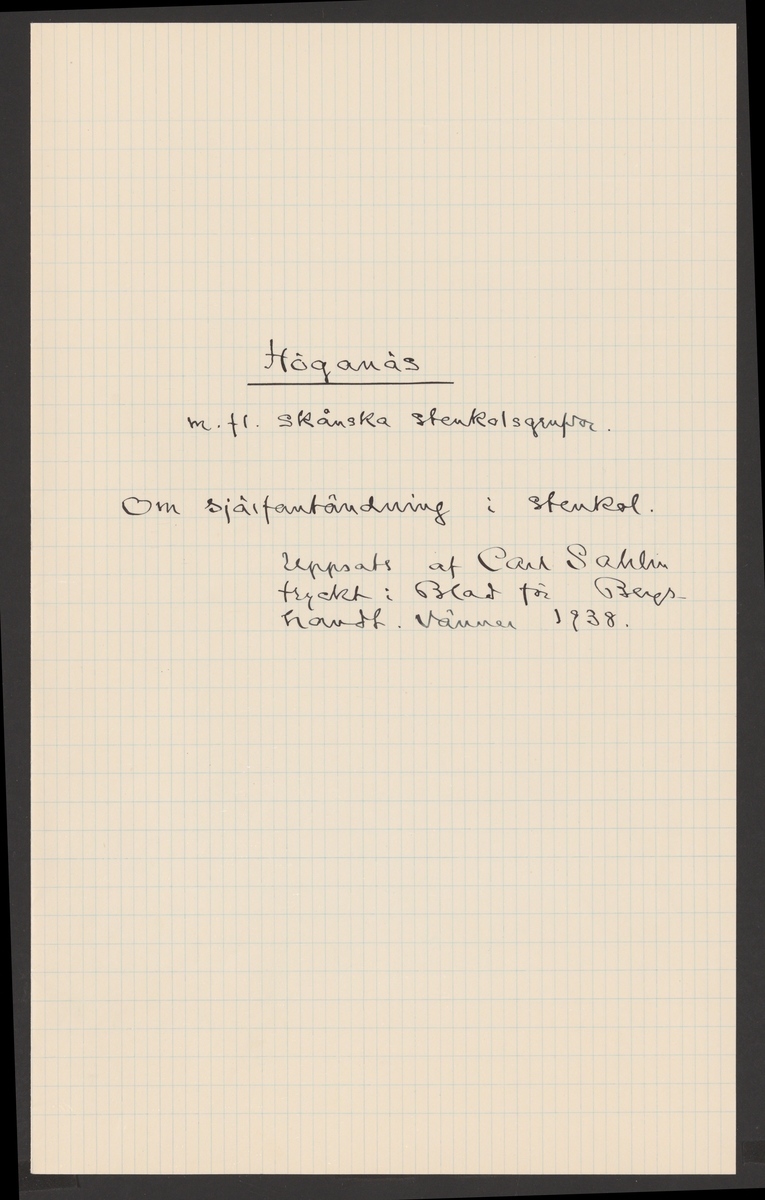 Höganäs
m. fl. skånska stenkolsgruvor.
Om självantändning i stenkol.
Uppsats af Carl Sahlin
tryckt i Blad för Bergs-
handt. Vänner 1938.